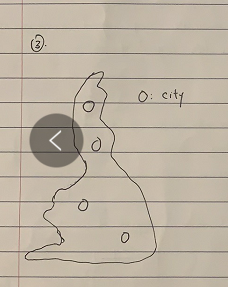 ③.
O: city